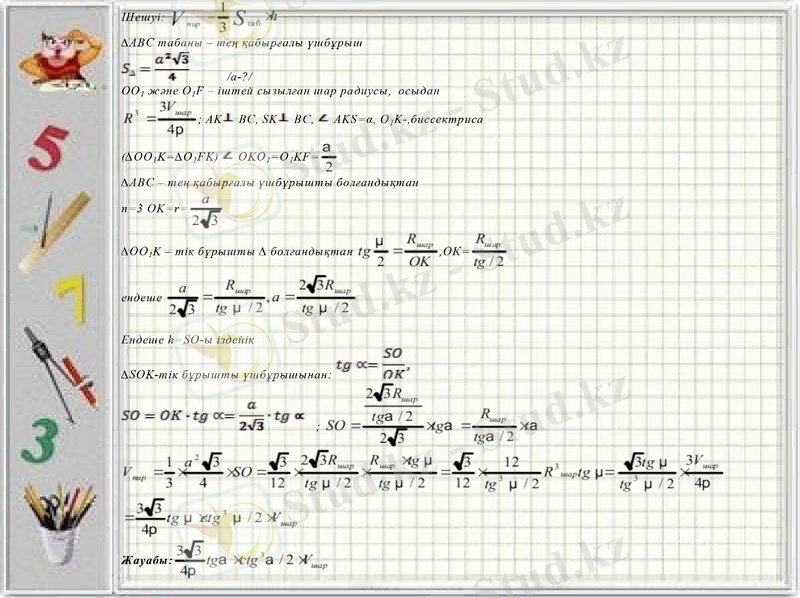 Шешуі: V пир = 1/3 S таб × h
∆ABC табаны – тең қабырғалы үшбұрыш
S∆ = a²√3/4 /a-?/
OO₁ және O₁F – іштей сызылған шар радиусы, осыдан
R³ = 3V шар/4p ; AK⊥ BC, SK⊥ BC, ∠ AKS=α, O₁K-,биссектриса
(∆OO₁K=∆O₁FK) ∠ OKO₁=O₁KF= a/2
∆ABC – тең қабырғалы үшбұрышты болғандықтан
n=3 OK=r= a/2√3
∆OO₁K – тік бұрышты ∆ болғандықтан tg µ/2 = R шар/OK ,OK= R шар/tg / 2
ендеше a/2√3 = R шар/tg µ / 2 , a = 2√3R шар/tg µ / 2
Ендеше h=SO-ы іздейік
∆SOK-тік бұрышты үшбұрышынан: tg ∝= SO/OK,
SO = OK · tg ∝= a/2√3 · tg ∝ ; SO = (2√3R шар/tga / 2)/2√3 × tga = R шар/tga / 2 × a
V пир = 1/3 × a²√3/4 × SO = √3/12 × 2√3R шар/tg µ / 2 × R шар × tg µ/tg µ / 2 = √3/12 × 12/tg³ µ / 2 R³ шар tg µ = √3tg µ/tg³ µ / 2 × 3V шар/4p
= 3√3/4p tg µ × ctg³ µ / 2 × V шар
Жауабы: 3√3/4p tga × ctg³a / 2 × V шар
Stud.kz - Stud.kz
Stud.kz - Stud.kz
Stud.kz - Stud.kz
Stud.kz